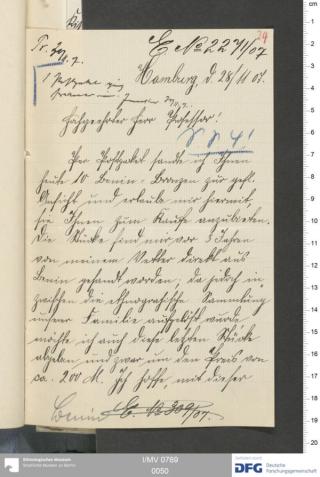 E № 2271/07
Hamburg, d. 28/11 07.
Hochgeehrter Herr Professor!
Per Postpaket sandte ich Ihnen
heute 10 Benin-Bronzen zur gefl.
Ansicht und erlaube mir hiermit,
sie Ihnen zum Kaufe anzubieten.
Die Stücke sind mir vor 5 Jahren
von meinem Vetter direkt aus
Benin gesandt worden, da jedoch in-
zwischen die ethnografische Sammlung
unserer Familie aufgelöst wurde
möchte ich auch diese letzten Stücke
abgeben und zwar um den Preis von
ca. 200 M. Ich hoffe, mit dieser
Benin
Ethnologisches Museum
Staatliche Museen zu Berlin
I/MV 0769
0050
DFG Deutsche
Forschungsgemeinschaft
cm
1
2
3
4
5
6
7
8
9
10
11
12
13
14
15
16
17
18
19
20